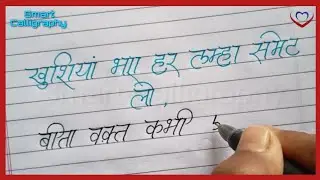 Smart
Calligraphy
खुशियां भा हर लम्हा समेट
लो,
बीता वक्त कभी